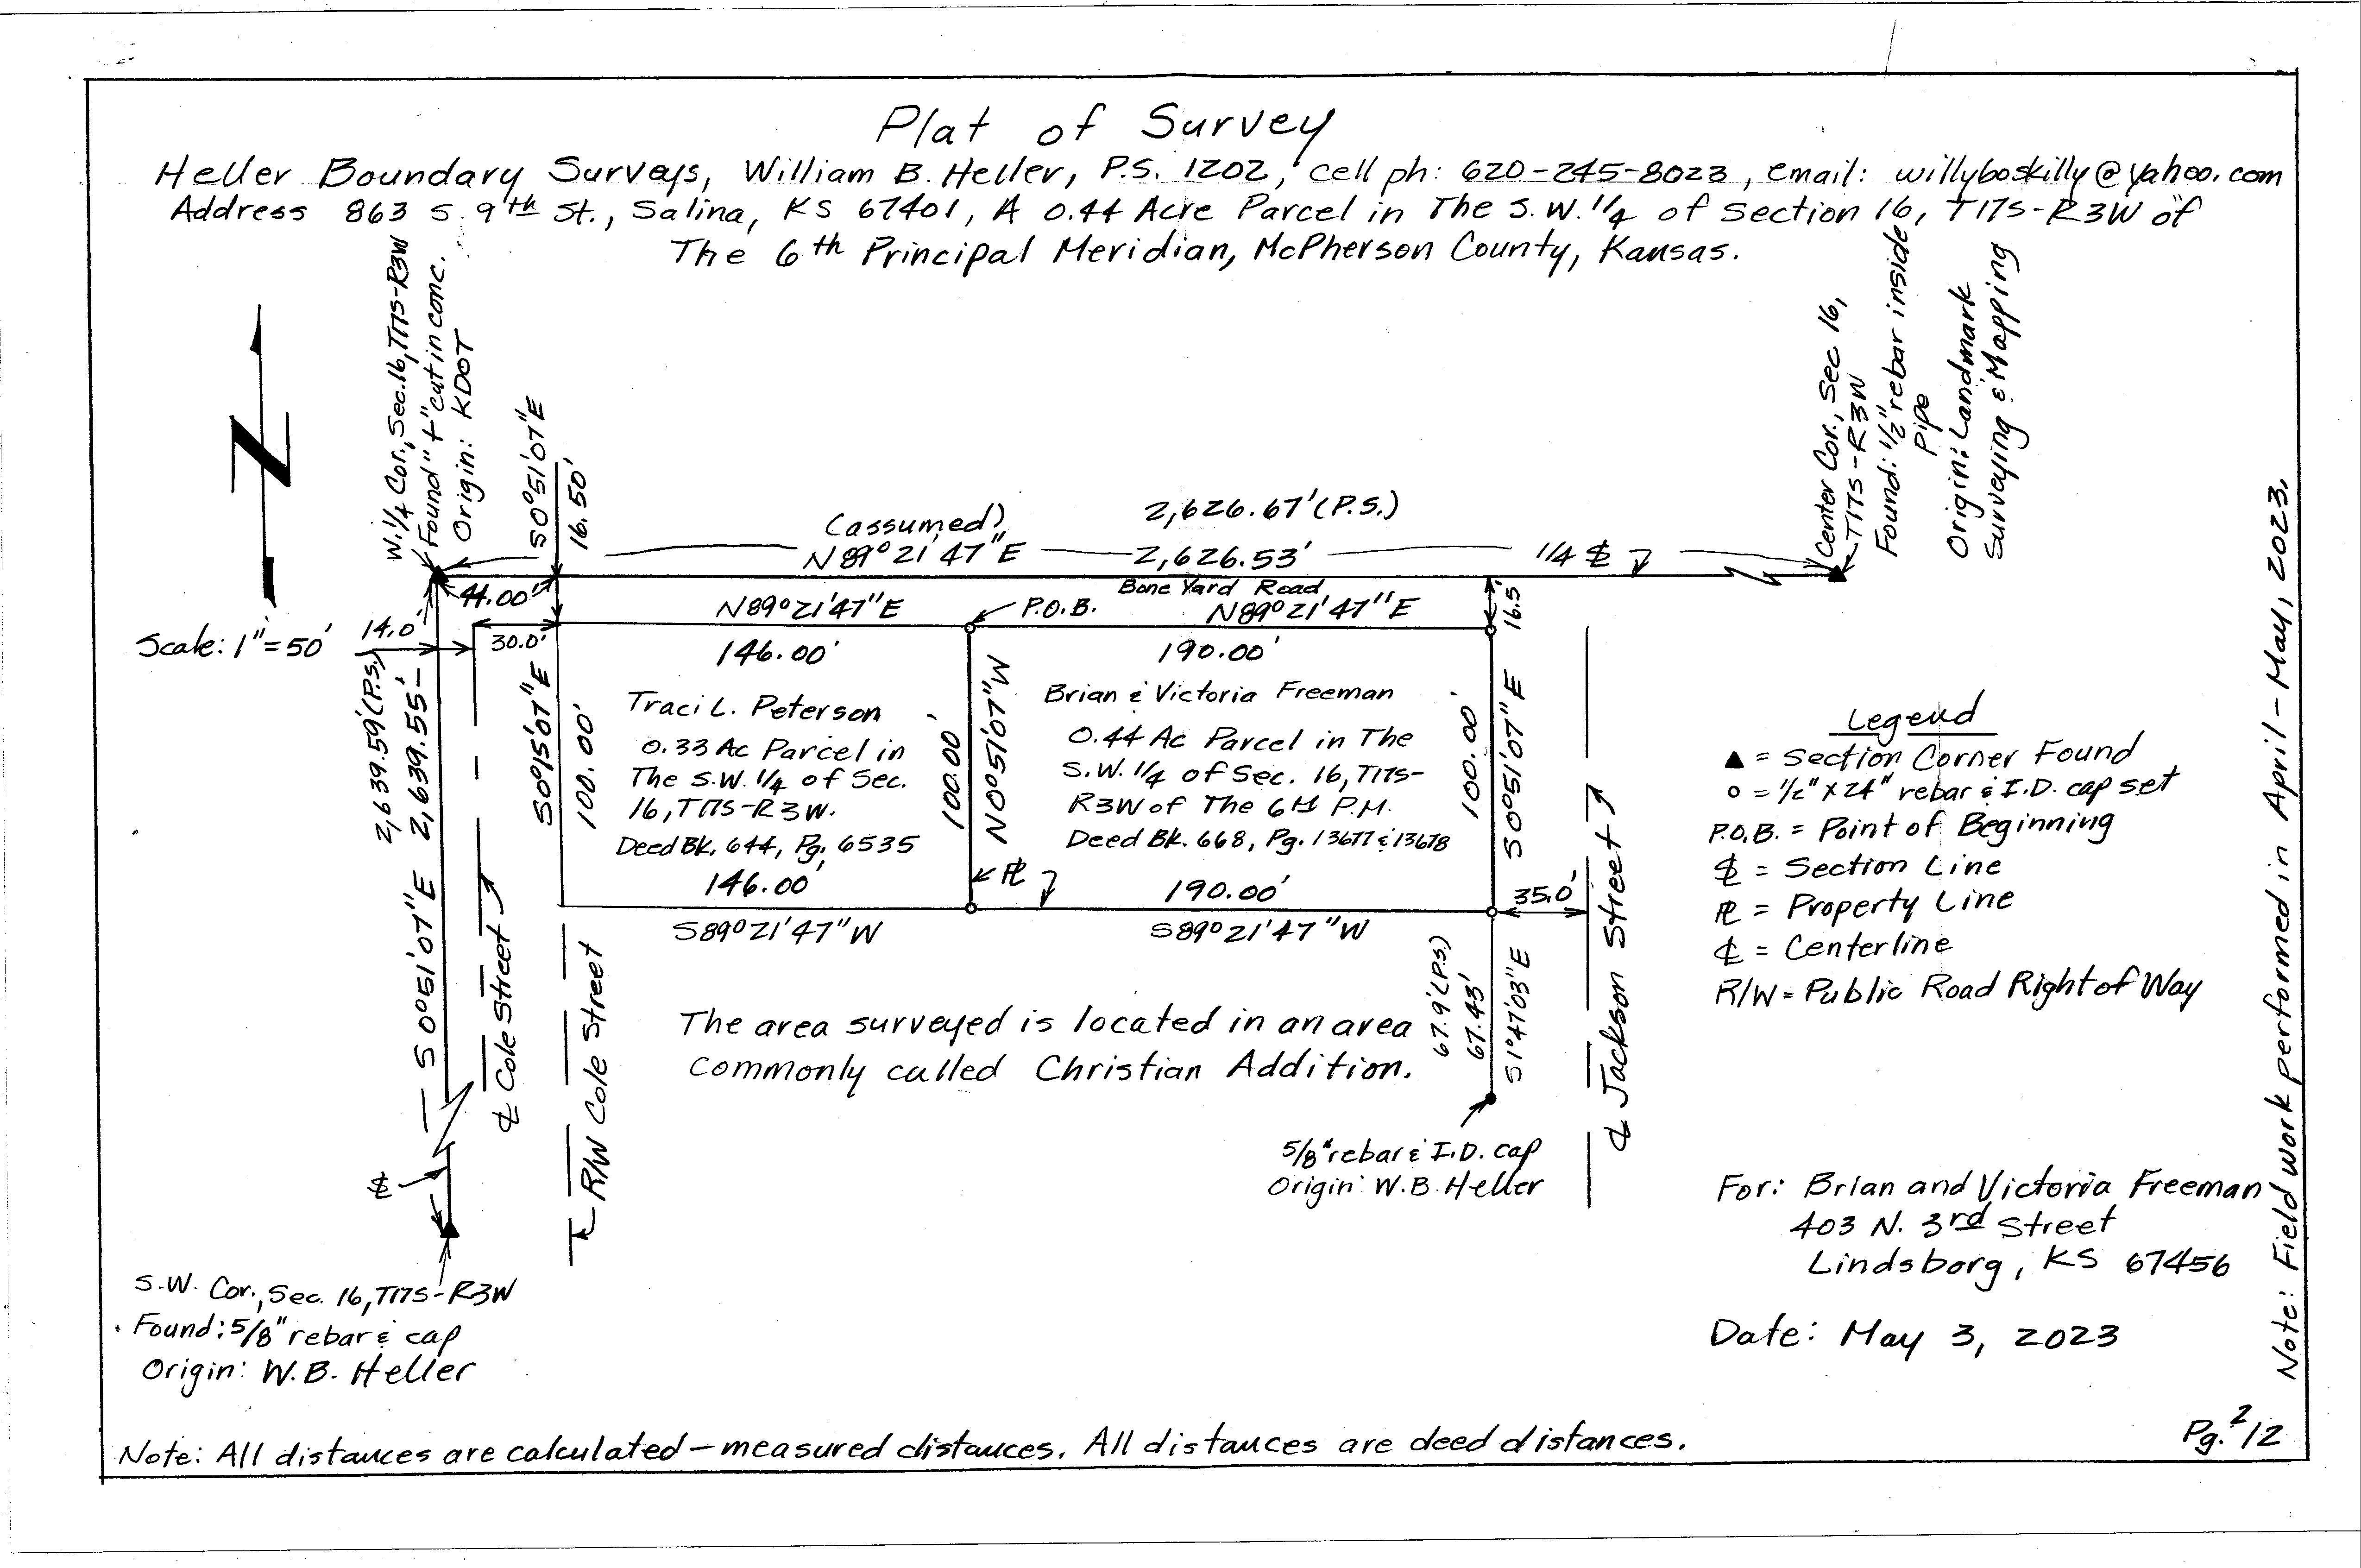 Plat of Survey
Heller Boundary Surveys, William B. Heller, P.S. 1202, cell ph: 620-245-8023, email: willyboskilly@yahoo.com
Address 863 S. 9th St., Salina, KS 67401, A 0.44 Acre Parcel in The S.W. 1/4 of Section 16, T17S-R3W of
The 6th Principal Meridian, McPherson County, Kansas.
W. 1/4 Cor., Sec. 16, T17S-R3W
Found "+" cut in conc.
Origin: KDOT
S0°51'07"E
16.50'
(assumed)
N89°21'47"E
2,626.67' (P.S.)
2,626.53'
1/4 SL
Center Cor., Sec 16,
T17S-R3W
Found: 1/2" rebar inside
Pipe
Origin: Landmark
Surveying & Mapping
Scale: 1"=50'
44.00'
14.0'
30.0'
Bone Yard Road
N89°21'47"E
P.O.B.
N89°21'47"E
16.5'
146.00'
190.00'
2,639.59' (P.S.)
S0°51'07"E 2,639.55'
S0°15'07"E
100.00'
Traci L. Peterson
0.33 Ac Parcel in
The S.W. 1/4 of Sec.
16, T17S-R3W.
Deed Bk. 644, Pg. 6535
146.00'
S89°21'47"W
100.00'
N0°51'07"W
Brian & Victoria Freeman
0.44 Ac Parcel in The
S.W. 1/4 of Sec. 16, T17S-
R3W of The 6th P.M.
Deed Bk. 668, Pg. 13677 & 13678
PL
190.00'
S89°21'47"W
100.00'
S0°51'07"E
35.0'
CL Cole Street
R/W Cole Street
CL Jackson Street
67.9' (P.S.)
67.43'
S1°47'03"E
5/8" rebar & I.D. cap
Origin: W.B. Heller
The area surveyed is located in an area
commonly called Christian Addition.
SL
S.W. Cor., Sec. 16, T17S-R3W
Found: 5/8" rebar & cap
Origin: W.B. Heller
Legend
▲ = Section Corner Found
o = 1/2" x 24" rebar & I.D. cap set
P.O.B. = Point of Beginning
SL = Section Line
PL = Property Line
CL = Centerline
R/W = Public Road Right of Way
For: Brian and Victoria Freeman
403 N. 3rd Street
Lindsborg, KS 67456
Date: May 3, 2023
Note: Field work performed in April-May, 2023.
Note: All distances are calculated-measured distances. All distances are deed distances.
Pg. 2/2